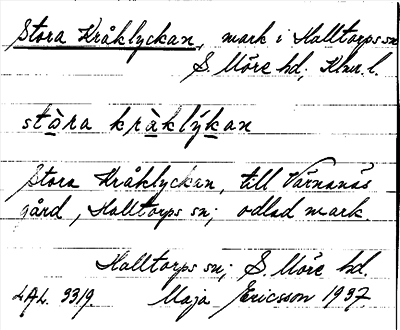 Stora Kråklyckan, mark i Halltorps sn
S. Möre hd; Klmr. l.
stὰra krὰklýkan
Stora Kråklyckan, till Värnanäs
gård, Halltorps sn; odlad mark.
Halltorps sn; S. Möre hd.
LAL. 3319. Maja Ericsson 1937.